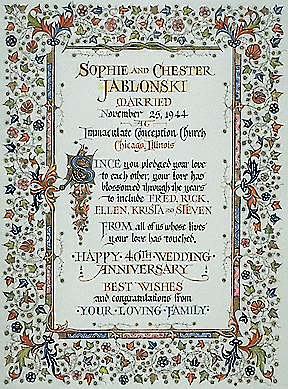 SOPHIE AND CHESTER
JABLONSKI
MARRIED
November 25, 1944
AT
Immaculate Conception Church
Chicago, Illinois
SINCE you pledged your love
to each other, your love has
blossomed through the years
to include FRED, RICK,
ELLEN, KRISTA and STEVEN
FROM all of us whose lives
your love has touched,
HAPPY 40TH WEDDING
ANNIVERSARY
BEST WISHES
and congratulations from
YOUR LOVING FAMILY